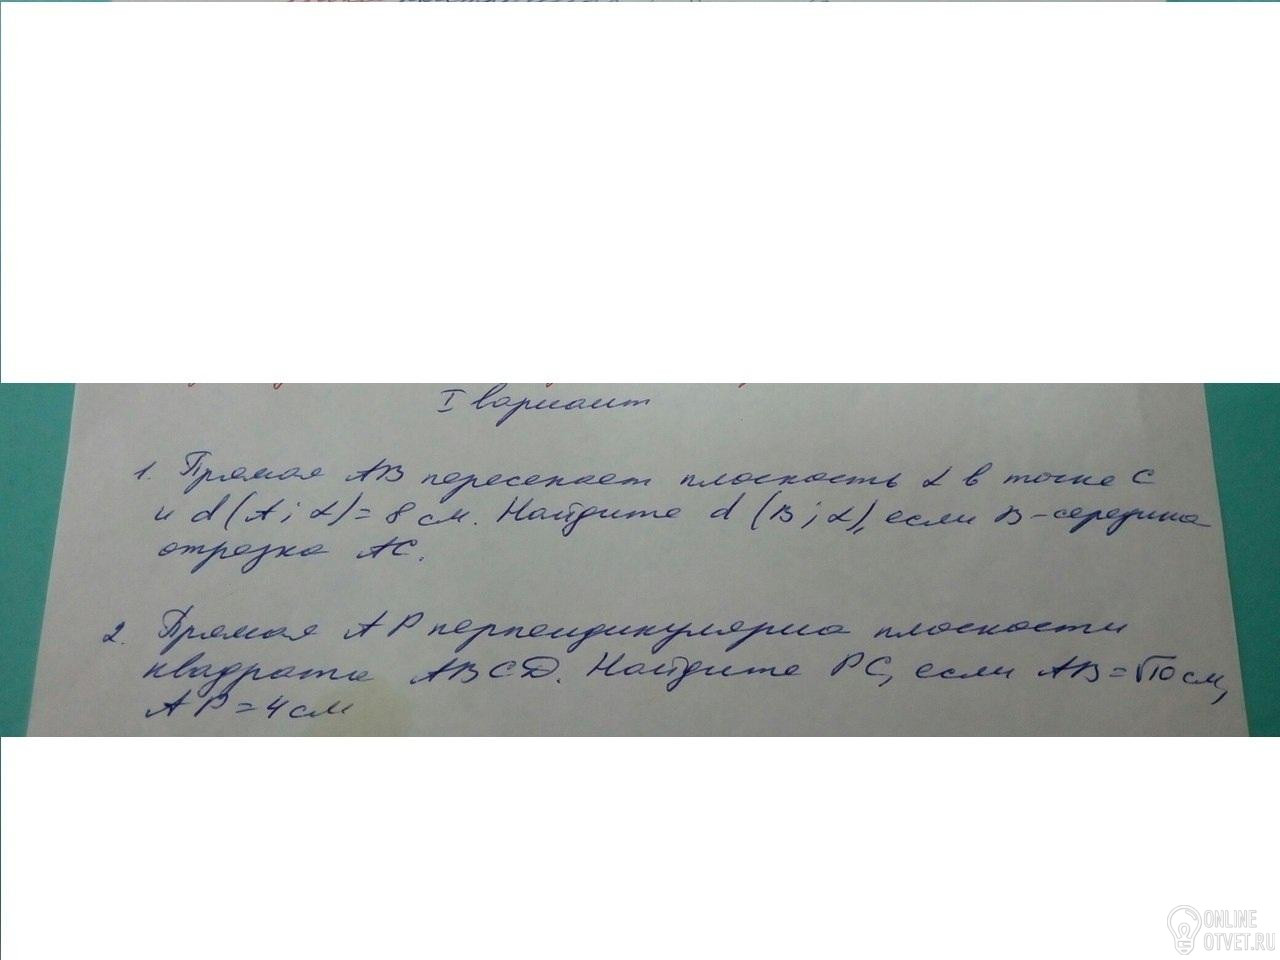 I вариант
1. Прямая AB пересекает плоскость α в точке C
и d(A; α) = 8 см. Найдите d (B; α), если B - середина
отрезка AC.
2. Прямая AP перпендикулярна плоскости
квадрата ABCD. Найдите PC, если AB = √10 см,
AP = 4 см
ONLINE
OTVET.RU